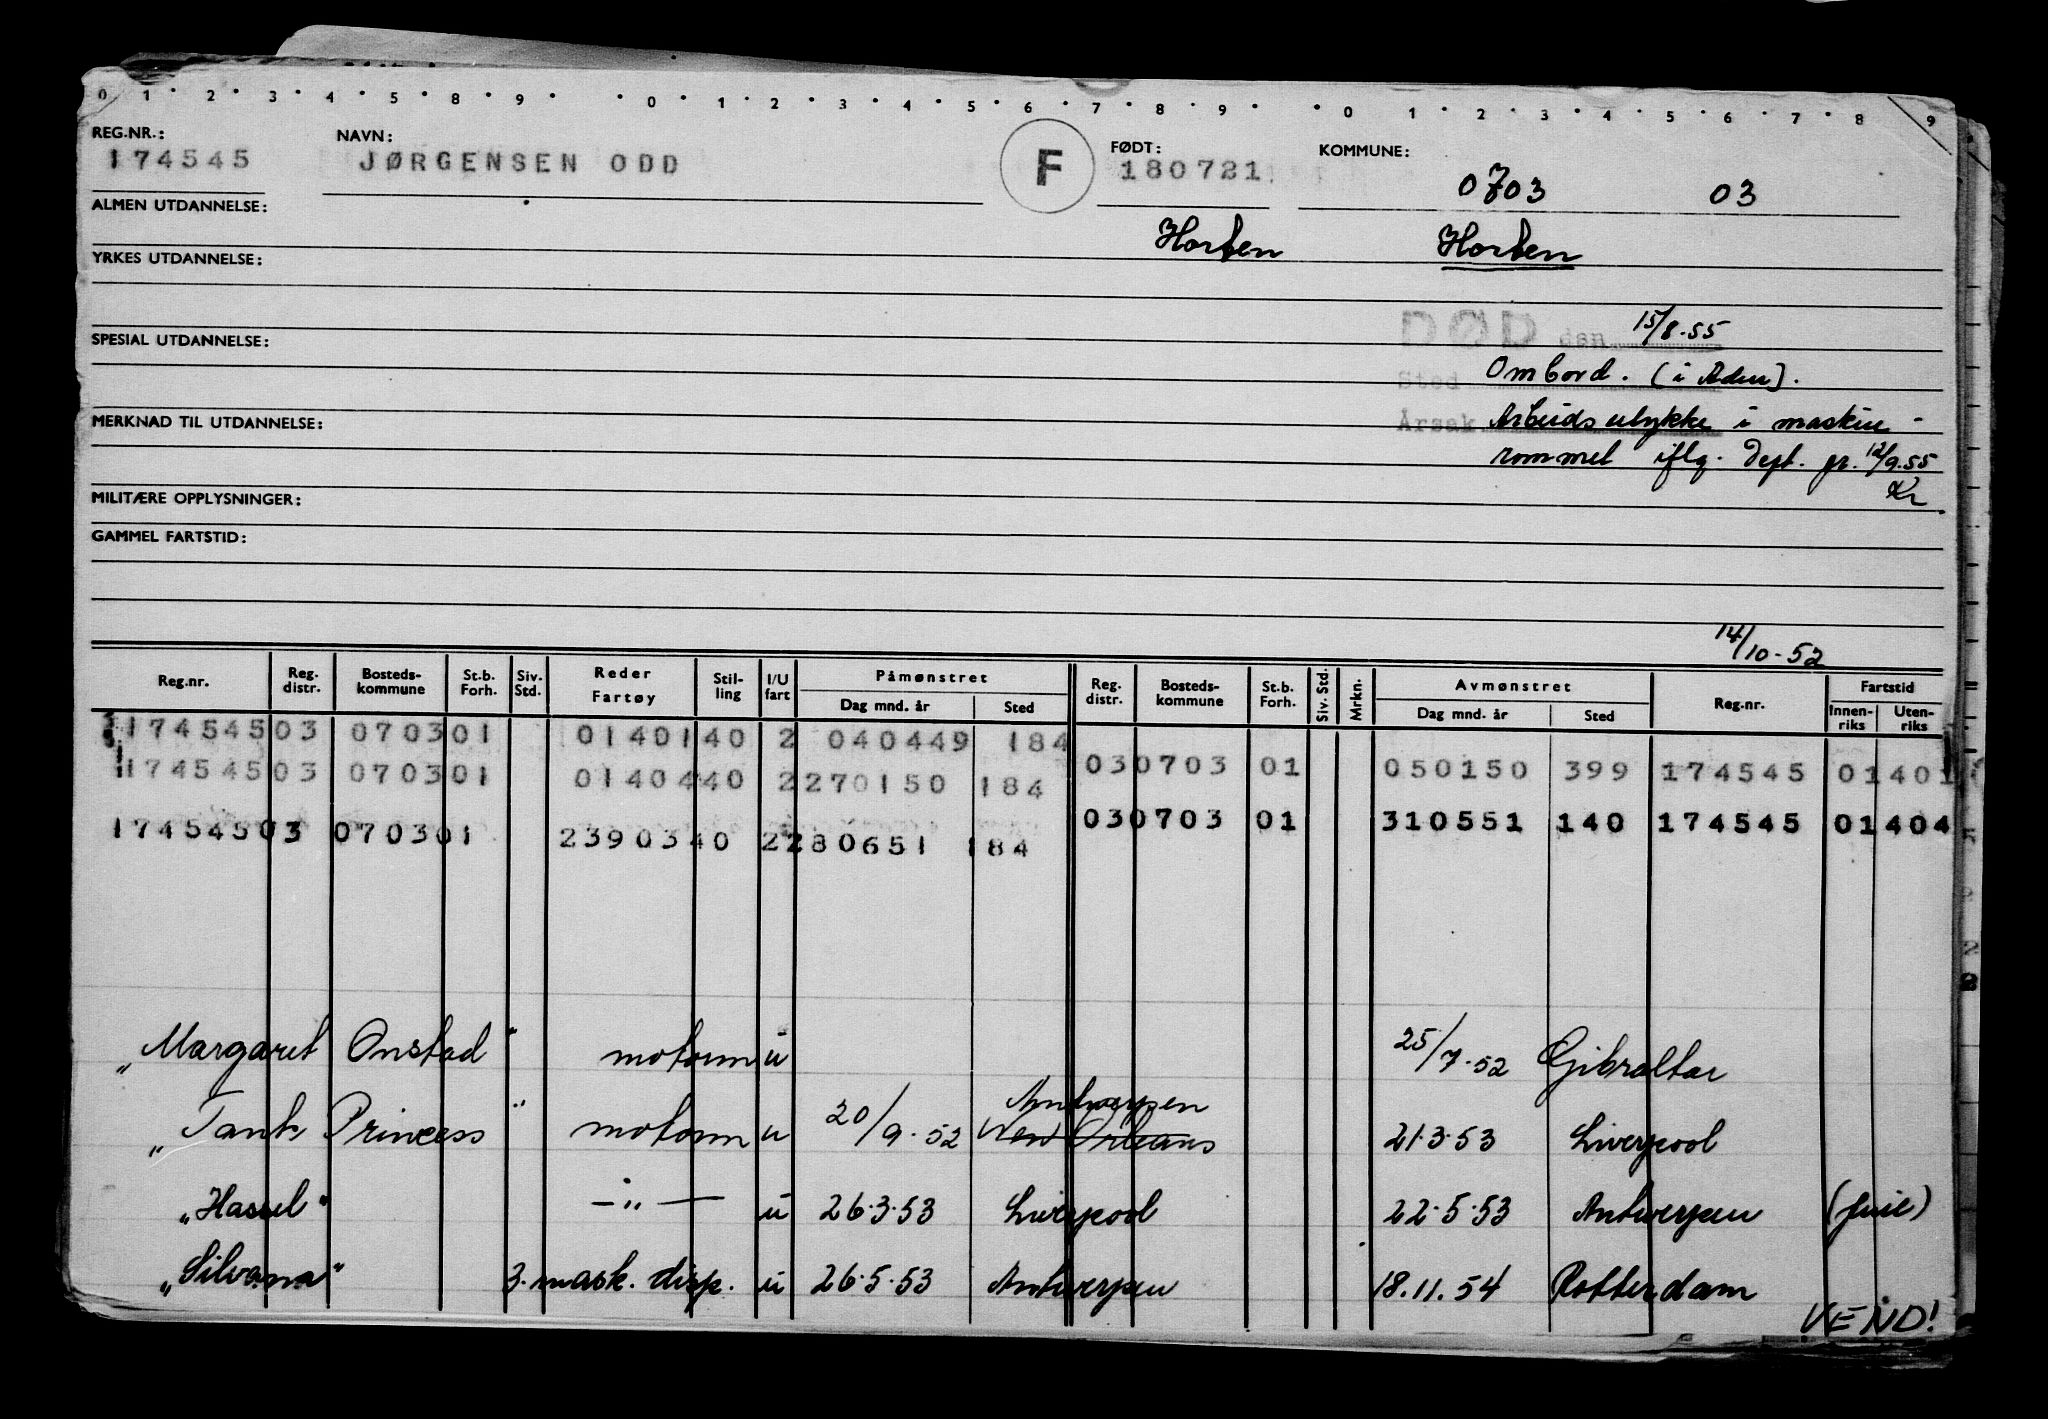 0 1 2 3 4 5 8 9 0 1 2 3 4 5 6 7 8 9 0 1 2 3 4 5 6 7 8 9
REG.NR.: NAVN: FØDT: KOMMUNE:
174545 JØRGENSEN ODD F 180721 0703 03
ALMEN UTDANNELSE:
Horten Horten
YRKES UTDANNELSE:
DØD den 15/8-55
SPESIAL UTDANNELSE:
Sted Ombord. (i Aden).
MERKNAD TIL UTDANNELSE: Årsak Arbeidsulykke i maskin-
rommet iflg. Dept. pr. 12/9.55
MILITÆRE OPPLYSNINGER: Kr
GAMMEL FARTSTID:
14/10-52
Reg.nr. Reg. distr. Bosteds-kommune St.b. Forh. Siv. Std. Reder Fartøy Stil-ling I/U fart Påmønstret Dag mnd. år Sted Reg. distr. Bosteds-kommune St.b. Forh. Siv. Std. Mrkn. Avmønstret Dag mnd. år Sted Reg.nr. Fartstid Innen-riks Uten-riks
174545 03 0703 01 01401 40 2 040449 184
174545 03 0703 01 01404 40 2 270150 184 03 0703 01 050150 399 174545 01401
174545 03 0703 01 23903 40 2 280651 184 03 0703 01 310551 140 174545 01404
"Margaret Onstad" motorm u 25/7-52 Gibraltar
Antwerpen
"Tank Princess" motorm u 20/9-52 New Orleans 21.3.53 Liverpool
"Hassel" -"- u 26.3.53 Liverpool 22.5.53 Antwerpen
"Silvana" 3. mask. disp. u 26.5.53 Antwerpen 18.11.54 Rotterdam
VEND!